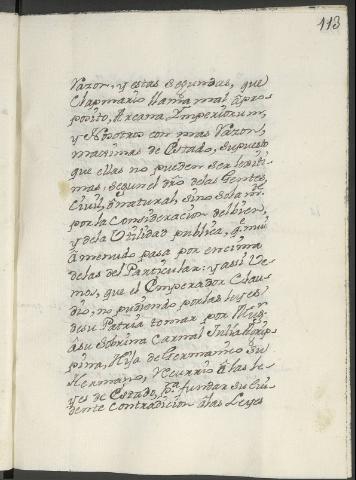 113
razon, y estas segundas, que
Clapmario llama mal â pro-
posito, Arcana, Imperiorum,
y Nosotros con mas razon,
maximas de Estado, supuesto
que ellas no pueden ser legiti-
mas, segun el dro delas Gentes,
Civil, ô natural, sino solam.te
por la Consideracion del bien,
y dela Utilidad publica, q.e mui
âmenudo pasa por encima
delas del Particular: y assi ve-
mos, que el Emperador Clau-
dio, no pudiendo por las leyes
de su Patria tomar por Mug.r
âsu Sobrina Carnal Julia Agrip-
pina, Hija de Germanico su
Hermano, recurrio âlas le-
yes de Estado, p.a fundar su Evi-
dente Contradicion âlas Leyes